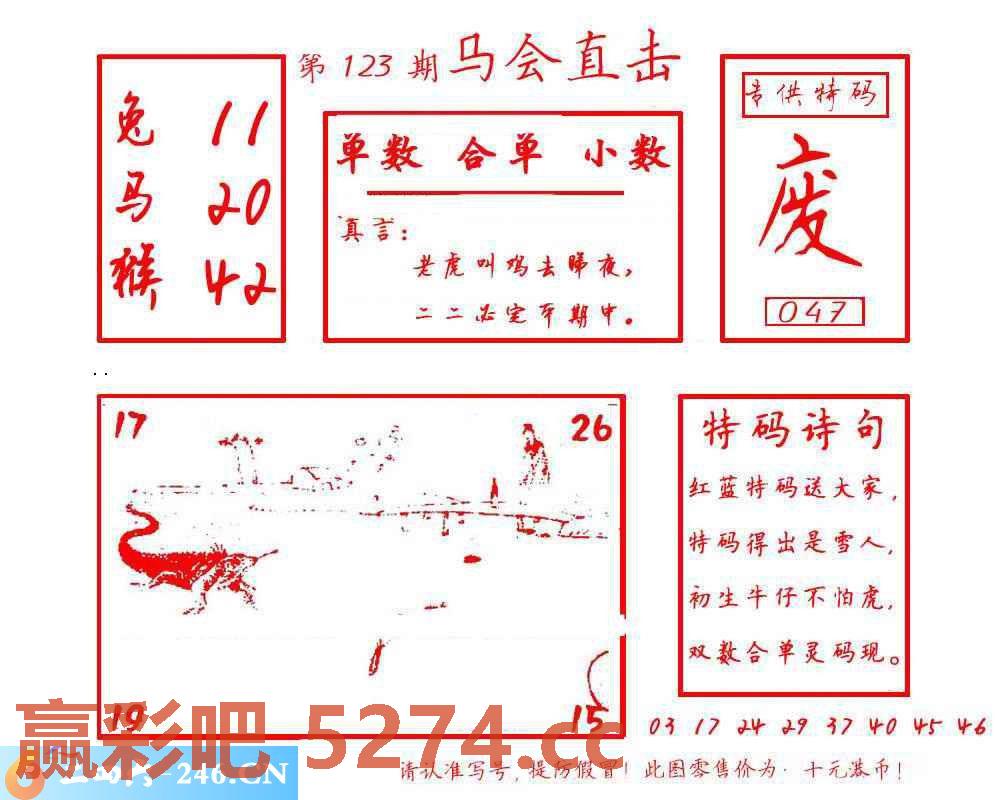 第 123 期 马会直击
兔 11
马 20
猴 42
单数 合单 小数
真言:
老虎叫鸡去睇夜,
二二必定本期中。
专供特码
废
047
17
26
19
15
特码诗句
红蓝特码送大家,
特码得出是雪人,
初生牛仔不怕虎,
双数合单灵码现。
03 17 24 29 37 40 45 46
赢彩吧 5274.cc
-246.CN
请认准写号,提防假冒!此图零售价为·十元港币!